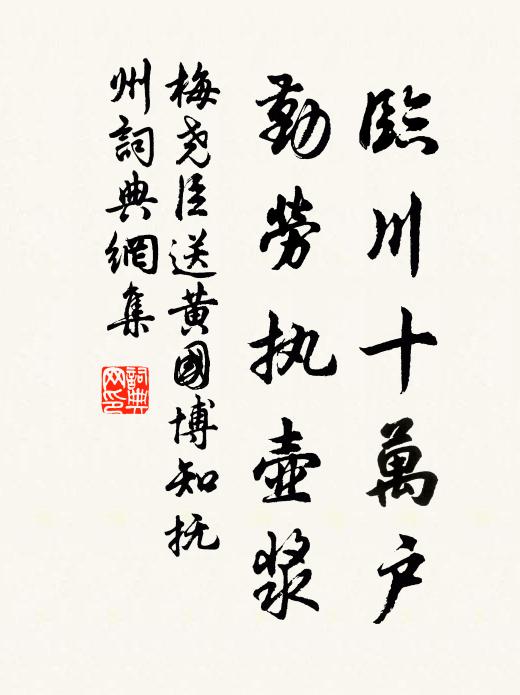 臨川十萬户
勤勞执壺漿
梅尧臣送黄國博知抚
州詞典網集
詞典
网印